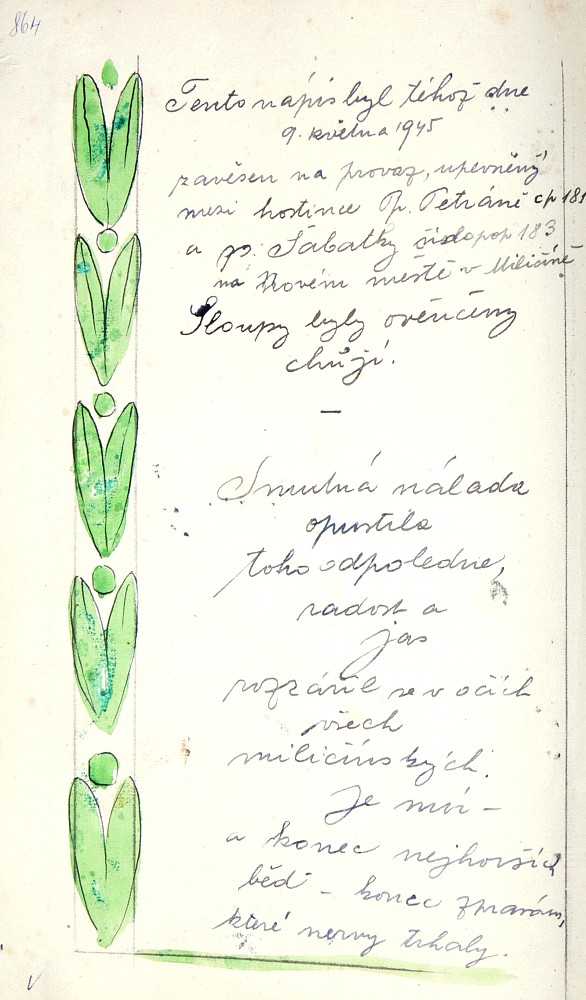 864
Tento nápis byl téhož dne
9. května 1945
zavěšen na provaz, upevněný
mezi hostince p. Petráně čp 181
a p. Sabatky číslo pop 183
na Novém městě v Miličíně
Sloupy byly ověnčeny
chůjí.
—
Smutná nálada
opustila
toho odpoledne,
radost a
jas
rozzářil se v očích
všech
miličínských.
Je mír –
a konec nejhorších
běd – konec zprávám,
které nervy trhaly.
V